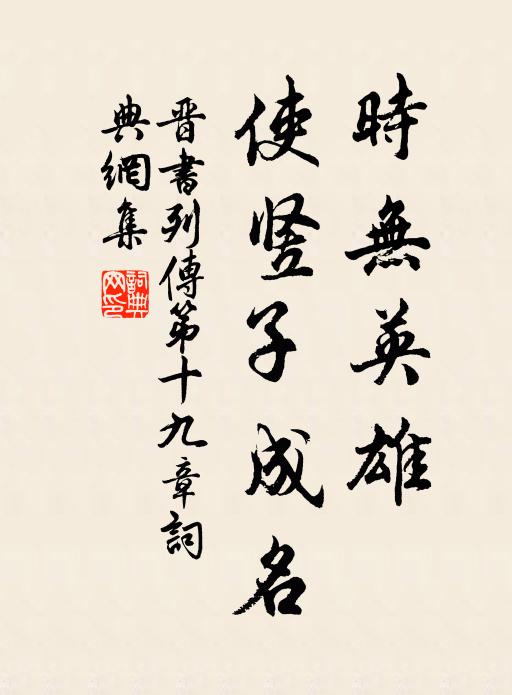 時無英雄
使豎子成名
晋書列傳第十九章詞
典網集
詞典網印